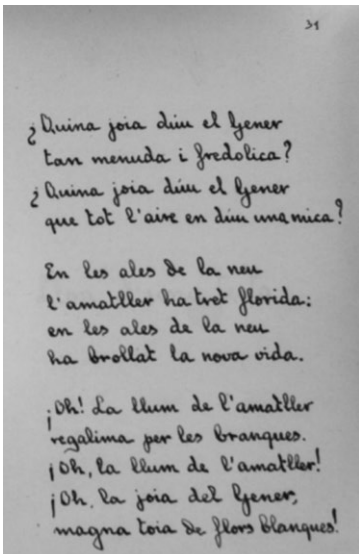 31
¿Quina joia diu el Gener
tan menuda i fredolica?
¿Quina joia diu el Gener
que tot l'aire en diu una mica?
En les ales de la neu
l'amatller ha tret florida:
en les ales de la neu
ha brollat la nova vida.
¡Oh! La llum de l'amatller
regalima per les branques.
¡Oh, la llum de l'amatller!
¡Oh, la joia del Gener,
magna toia de flors blanques!